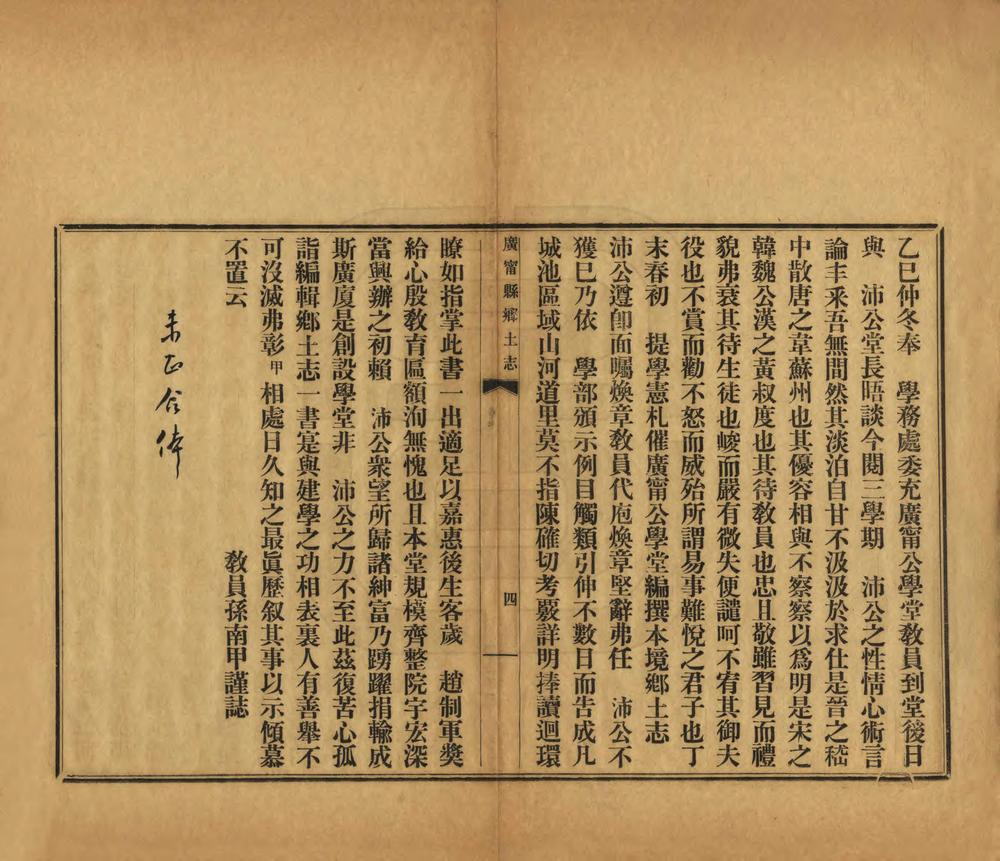 乙巳仲冬奉　學務處委充廣甯公學堂教員到堂後日
與　沛公堂長晤談今閱三學期　沛公之性情心術言
論丰采吾無間然其淡泊自甘不汲汲於求仕是晉之嵇
中散唐之韋蘇州也其優容相與不察察以爲明是宋之
韓魏公漢之黃叔度也其待敎員也忠且敬雖習見而禮
貌弗衰其待生徒也峻而嚴有微失便譴呵不宥其御夫
役也不賞而勸不怒而威殆所謂易事難悅之君子也丁
未春初　提學憲札催廣甯公學堂編撰本境鄉土志
沛公遵卽面囑煥章敎員代庖煥章堅辭弗任　沛公不
獲已乃依　學部頒示例目觸類引伸不數日而告成凡
城池區域山河道里莫不指陳確切考覈詳明捧讀迴環
廣甯縣鄉土志　四
瞭如指掌此書一出適足以嘉惠後生客歲　趙制軍獎
給心殷敎育區額洵無愧也且本堂規模齊整院宇宏深
當興辦之初賴　沛公衆望所歸諸紳富乃踴躍捐輸成
斯廣厦是創設學堂非　沛公之力不至此茲復苦心孤
詣編輯鄉土志一書寔與建學之功相表裏人有善舉不
可沒滅弗彰甲相處日久知之最眞歷叙其事以示傾慕
不置云
敎員孫南甲謹誌